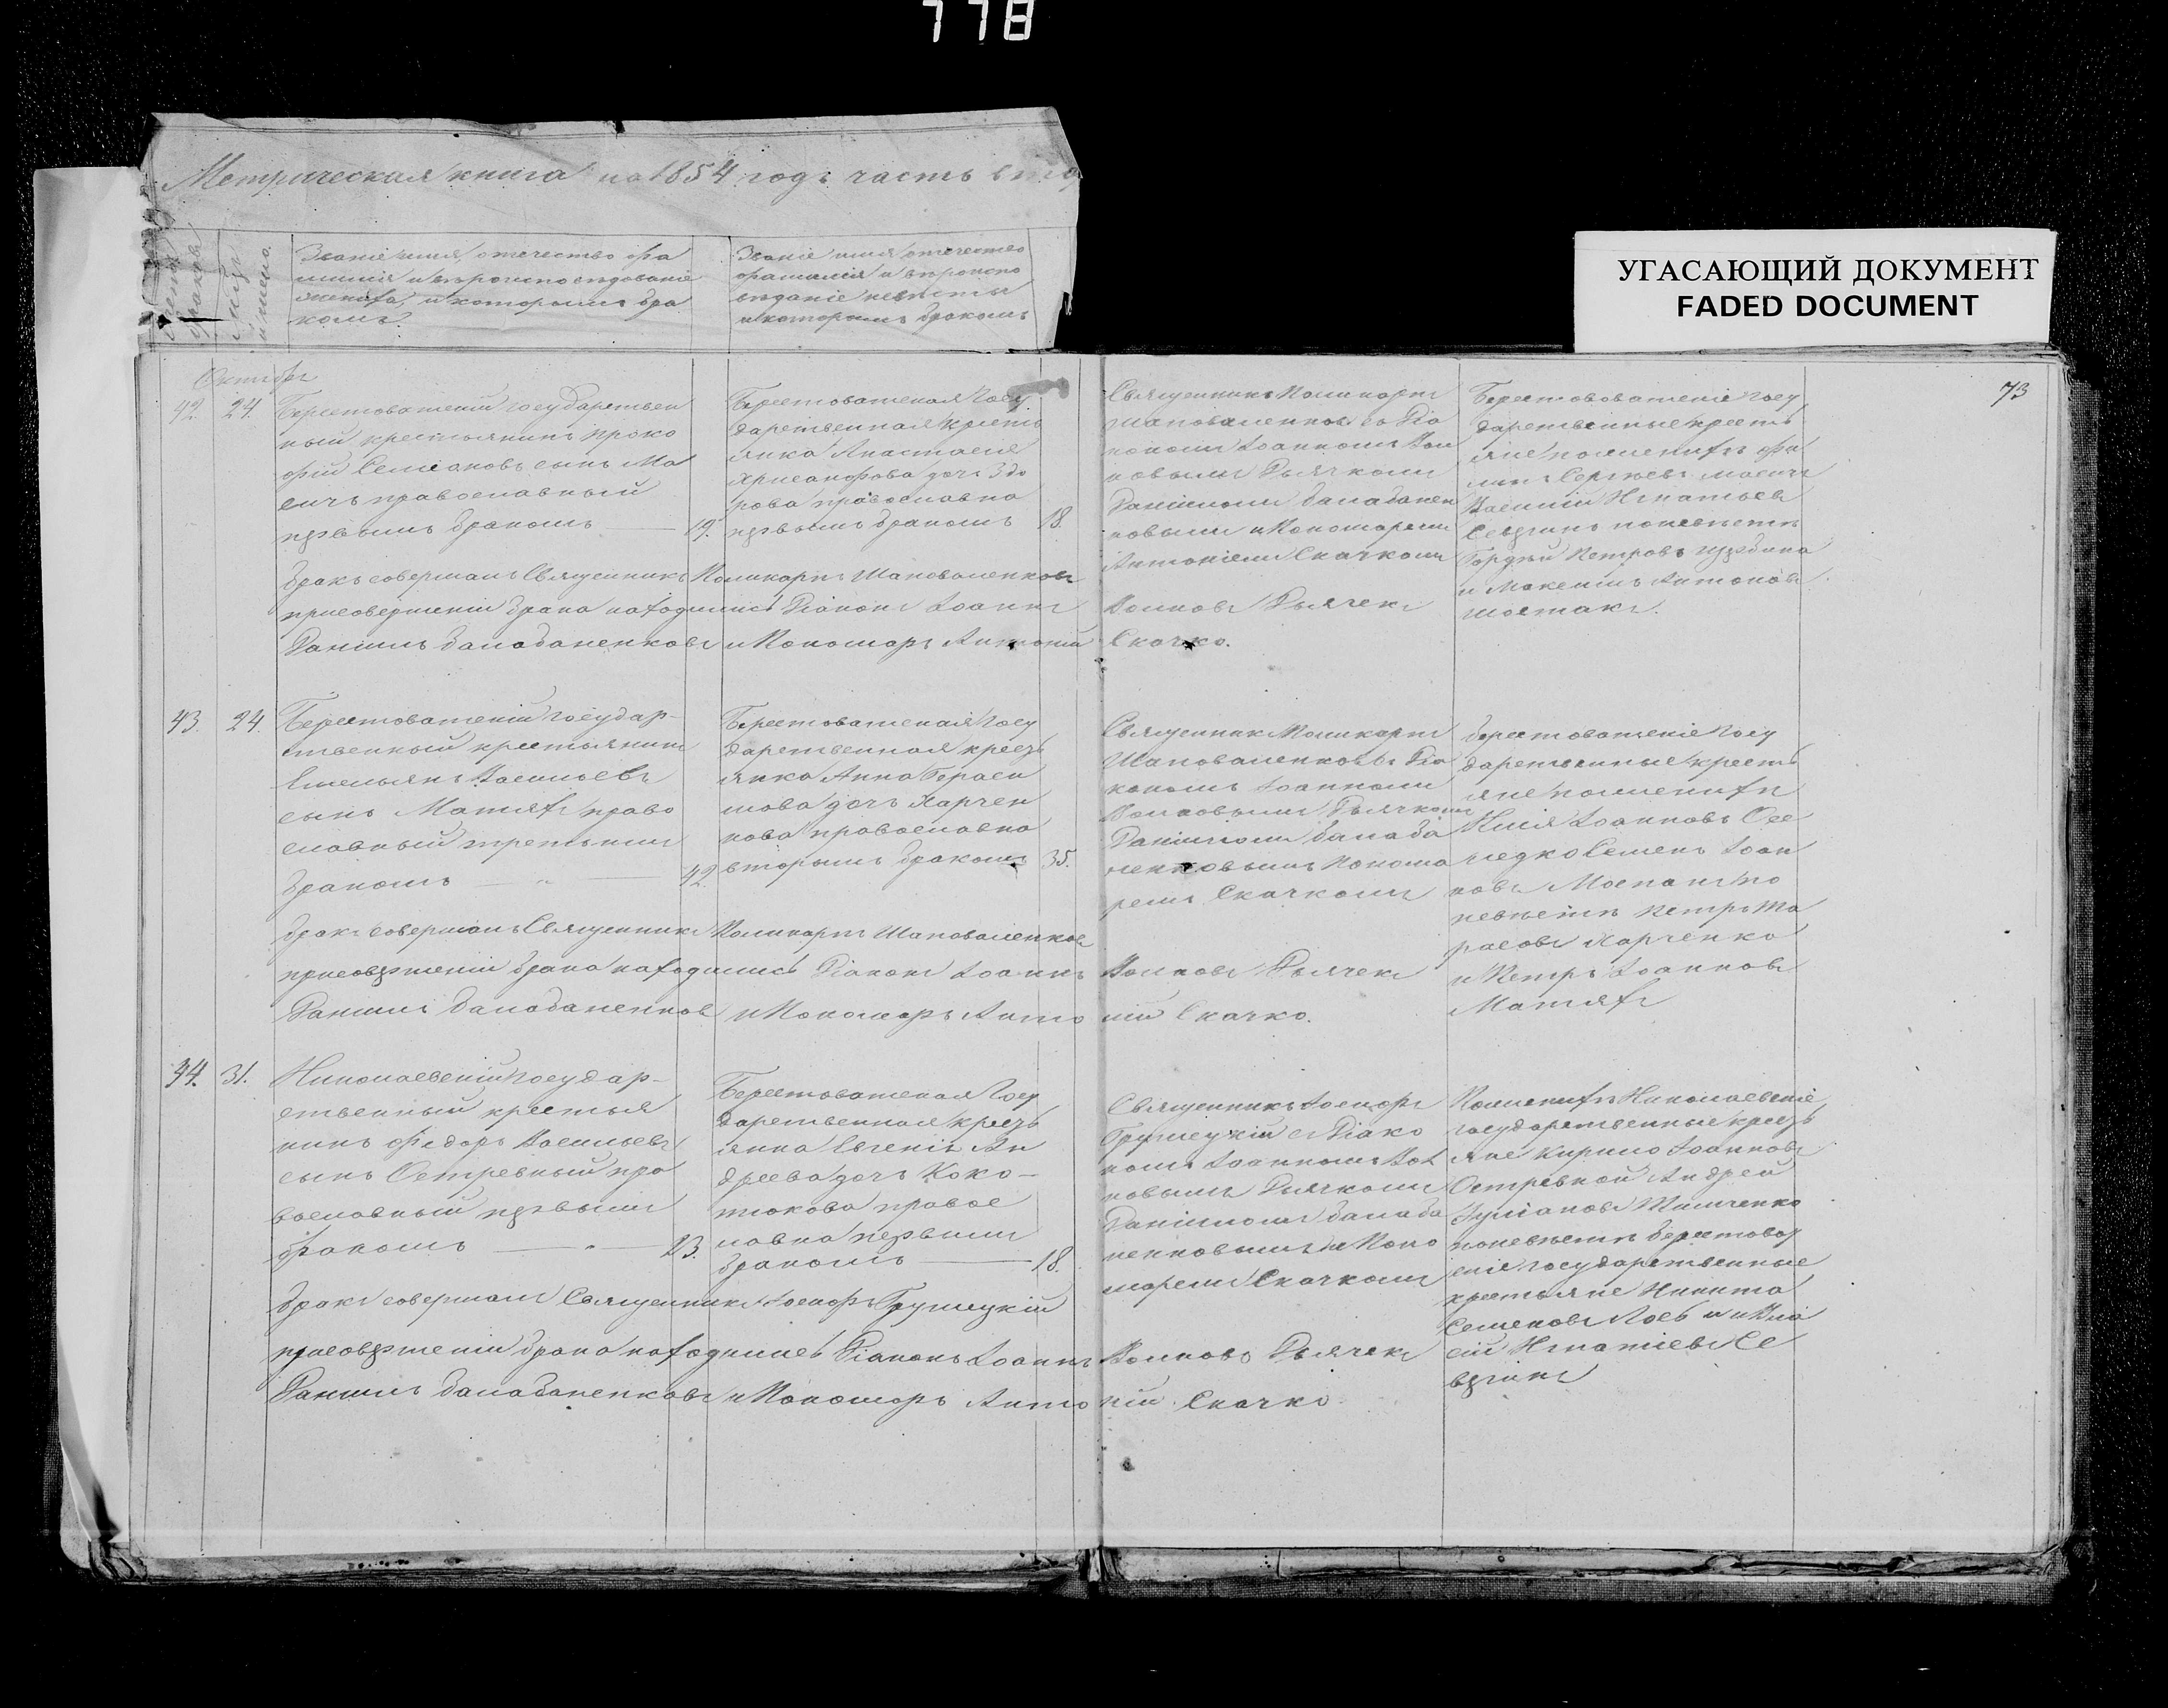 778
УГАСАЮЩИЙ ДОКУМЕНТ
FADED DOCUMENT
73
Метрическая книга на 1854 годъ часть втор
Званіе имя, отечество фа
милія и вѣроисповѣданіе
жениха, и которымъ бра
комъ.
Званіе имя отечество
фамилія и вѣроиспо
вѣданіе невѣсты
и которымъ бракомъ
Октябрь
42. 24.
Берестоватскій государствен
ный крестьянинъ Проко
фій Семіоновъ сынъ Ма
сичъ православный
первымъ бракомъ — 19.
Берестоватская Госу
дарственная кресть
янка Анастасія
Хрисанфова дочь Здо
рова православна
первымъ бракомъ 18.
Священникъ Поликарпъ
Шаповаленковъ со Діа
кономъ Іоанномъ Вол
ковымъ Дьячкомъ
Даніиломъ Балабанен
ковымъ и Пономаремъ
Антоніемъ Скачкомъ
Берестоватскіе Госу
дарственные кресть
яне по женихѣ Фи
липъ Сергѣевъ Масичъ
Василій Игнатьевъ
Севринъ по невѣстѣ
Гордѣй Петровъ
и Максимъ Антоновъ
Шостакъ.
Бракъ совершалъ Священникъ Поликарпъ Шаповаленковъ
при совершеніи брака находились Діаконъ Іоаннъ Волковъ Дьячекъ
Даніилъ Балабаненковъ и Пономарь Антоній Скачко.
43. 24.
Берестоватскій Государ-
ственный крестьянинъ
Емельянъ Васильевъ
сынъ Матяхъ право
славный третьимъ
бракомъ — 42.
Берестоватская Госу
дарственная кресть
янка Анна Гераси
мова дочь Харчен
кова православна
вторымъ бракомъ 35.
Священник Поликарпъ
Шаповаленковъ Діа
кономъ Іоанномъ
Волковымъ Дьячкомъ
Даніиломъ Балаба
ненковымъ Понома
ремъ Скачкомъ
Берестоватскіе Госу
дарственные кресть
яне по женихѣ
Илія Іоанновъ
Семенъ Іоан
новъ по
невѣстѣ Петръ Та
расовъ Харченко
и Петръ Іоанновъ
Матяхъ
Бракъ совершалъ Священникъ Поликарпъ Шаповаленковъ
при совершеніи брака находились Діаконъ Іоаннъ Волковъ Дьячекъ
Даніилъ Балабаненков и Пономарь Антоній Скачко.
44. 31.
Николаевскій Государ-
ственный крестья
нинъ Федоръ Васильевъ
сынъ Остревный пра
вославный первымъ
бракомъ — 23.
Берестоватская Госу
дарственная кресть
янка Евгенія Ан
дреева дочь Коко-
тюкова правос
лавна первымъ
бракомъ — 18.
Священникъ Іосифъ
Грушецкій съ Діако
номъ Іоанномъ Вол
ковымъ Дьячкомъ
Даніиломъ Балаба
ненковымъ и Поно
маремъ Скачкомъ
По женихѣ Николаевскіе
государственные кресть
яне Кирило Іоанновъ
Остревной Андрей
по невѣстѣ Берестоват
скіе государственные
крестьяне Никита
Семеновъ
Игнатіевъ Се
вринъ
Бракъ совершалъ Священникъ Іосифъ Грушецкій
при совершеніи брака находились Діаконъ Іоаннъ Волковъ Дьячекъ
Даніилъ Балабаненковъ и Пономарь Антоній Скачко